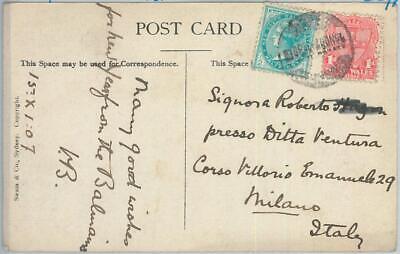 POST CARD
This Space may be used for Correspondence.
This Space may be
Many good wishes
for New Year from the Balmains
HB.
15-XI.07
Swain & Co., Sydney, Copyright.
1d
WALES
Signora Roberto
presso Ditta Ventura
Corso Vittorio Emanuele 29
Milano
Italy